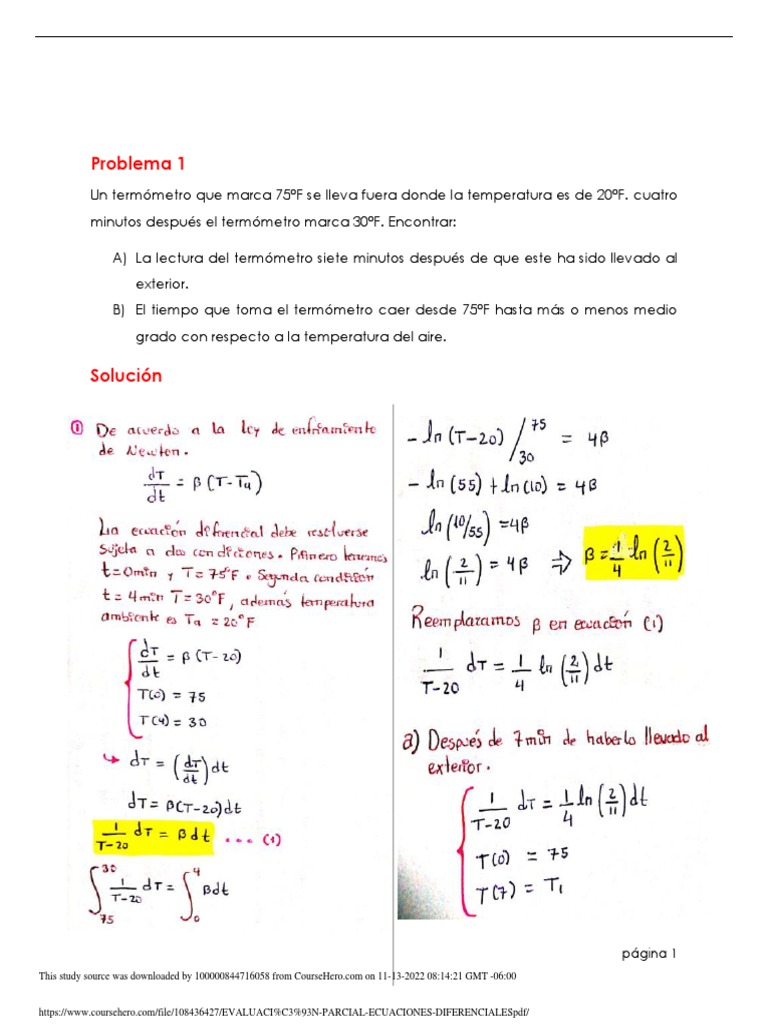 Problema 1
Un termómetro que marca 75°F se lleva fuera donde la temperatura es de 20°F. cuatro
minutos después el termómetro marca 30°F. Encontrar:
A) La lectura del termómetro siete minutos después de que este ha sido llevado al
exterior.
B) El tiempo que toma el termómetro caer desde 75°F hasta más o menos medio
grado con respecto a la temperatura del aire.
Solución
① De acuerdo a la ley de enfriamiento
de Newton.
dT/dt = β (T-Ta)
La ecuación diferencial debe resolverse
sujeta a dos condiciones. Primero tenemos
t=0min y T=75°F. Segunda condición
t=4min T=30°F, además temperatura
ambiente es Ta = 20°F
dT/dt = β (T-20)
T(0) = 75
T(4) = 30
↪ dT = (dT/dt) dt
dT = β(T-20)dt
1/(T-20) dT = β dt ... (1)
∫₇₅³⁰ 1/(T-20) dT = ∫₀⁴ βdt
- ln (T-20) / ₃₀⁷⁵ = 4β
- ln (55) + ln (10) = 4β
ln (10/55) = 4β
ln (2/11) = 4β ⇒ β = 1/4 ln (2/11)
Reemplazamos β en ecuación (1)
1/(T-20) dT = 1/4 ln (2/11) dt
a) Después de 7min de haberlo llevado al
exterior.
1/(T-20) dT = 1/4 ln (2/11) dt
T(0) = 75
T(7) = T₁
página 1
This study source was downloaded by 100000844716058 from CourseHero.com on 11-13-2022 08:14:21 GMT -06:00
https://www.coursehero.com/file/108436427/EVALUACI%C3%93N-PARCIAL-ECUACIONES-DIFERENCIALESpdf/